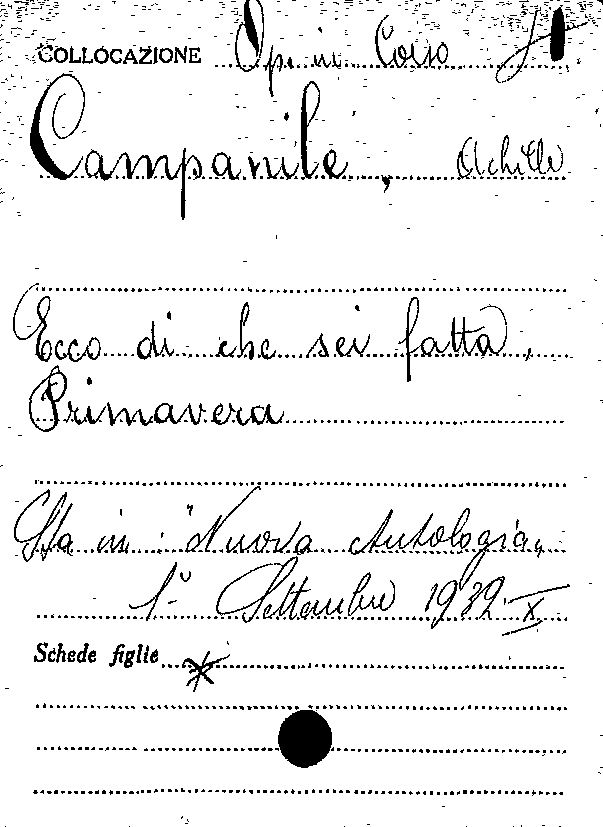 COLLOCAZIONE Op. in Corso
Campanile, Achille
Ecco di che sei fatta,
Primavera
Sta in: "Nuova Antologia„
1º Settembre 1932-X
Schede figlie